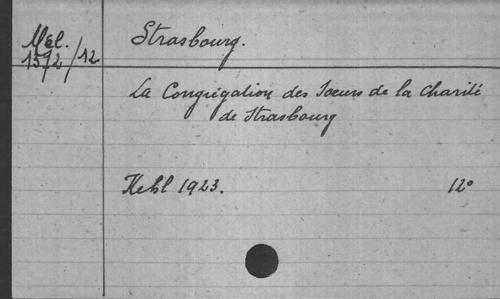 Mél.
1572/12
Strasbourg.
La Congrégation des Sœurs de la Charité
de Strasbourg
Kehl 1923. 12°